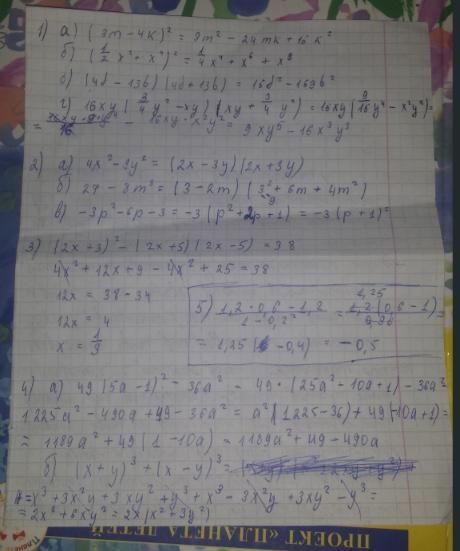 1) а) (3m-4k)² = 9m² - 24mk + 16k²
б) (1/2 x³ + x⁴)² = 1/4 x⁶ + x⁷ + x⁸
в) (4d - 13b)(4d + 13b) = 16d² - 169b²
г) 16xy (3/4 y² - xy)(xy + 3/4 y²) = 16xy (9/16 y⁴ - x²y²) =
- 16xy · x²y² = 9xy⁵ - 16x³y³
2) а) 4x² - 9y² = (2x - 3y)(2x + 3y)
б) 27 - 8m³ = (3 - 2m)(9 + 6m + 4m²)
в) -3p² - 6p - 3 = -3(p² + 2p + 1) = -3(p + 1)²
3) (2x + 3)² - (2x + 5)(2x - 5) = 38
4x² + 12x + 9 - 4x² + 25 = 38
12x = 38 - 34
12x = 4
x = 1/3
5) =
= 1,25( - 0,4) = -0,5
4) а) 49(5a - 1)² - 36a² = 49 · (25a² - 10a + 1) - 36a²
1225a² - 490a + 49 - 36a² = a²(1225 - 36) + 49(-10a + 1) =
= 1189a² + 49(1 - 10a) = 1189a² + 49 - 490a
б) (x + y)³ + (x - y)³ =
= x³ + 3x²y + 3xy² + y³ + x³ - 3x²y + 3xy² - y³ =
= 2x³ + 6xy² = 2x(x² + 3y²)
ПРОЕКТ «ПЛАНЕТА ДЕТЕЙ